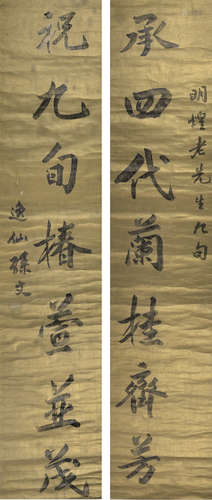 明煌老先生九旬
承四代蘭桂齊芳
祝九旬椿萱並茂
逸仙孫文